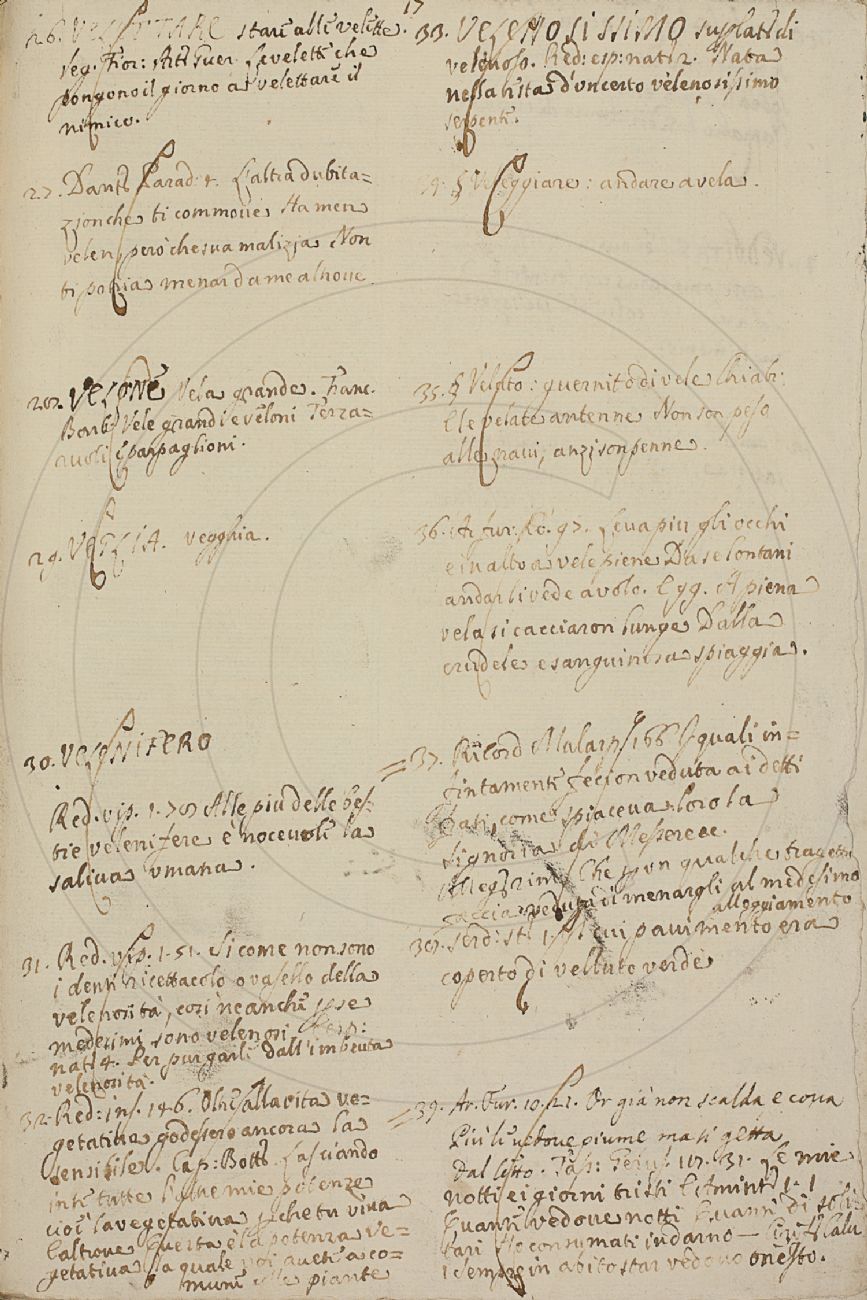 17
26. VELETTARE stare alle velette.
seg. Fior: Art: Guer. Le velette che
pongono il giorno a velettare il
nimico.
27. Dante Parad: 4. L'altra dubita=
zion che ti commove Ha men
velen, però che sua malizia Non
ti poria menar da me altrove.
28. VELONE Vela grande. Franc.
Barb. Vele grandi e veloni Terza=
ruoli e parpaglioni.
29. VEGLIA. vegghia.
30. VELENIFERO
Red. vip. 1. Alle più delle bes=
tie velenifere è nocevole la
saliva umana.
31. Red. vip. 1. 51. Si come non sono
i denti ricettacolo o vasello della
velenosità, così ne anche per se
medesimi sono velenosi.
nat: 4. Per purgarle dall'imbevuta
velenosità.
32. Red: ins. 146. Oltre alla vita ve=
getativa godessero ancora la
sensibile. Cap: Bott: Lasciando
tutte l'altre mie potenze
cioè la vegetativa perche tu viva
L'altrove Questa è la potenza ve=
getativa la quale voi avete a co=
mune alle piante
33. VELENOSISSIMO suplati: di
velenoso. Red: esp: nat: 2. Nata
nella vista d'un certo velenosissimo
serpente.
34. § Veleggiare: andare a vela.
35. § Velato: guernito di vele Chiabr:
E le velate antenne Non son peso
alle navi, anzi son penne.
36. Ar. fur. 10. 97. Leva più gli occhi
e in alto a vele piene Da se lontani
andar li vede a volo. E 99. A piena
vela si cacciaron lunge Dalla
crudele e sanguinosa spiaggia.
=37. Ricord Malasp. 166 I quali in=
fintamente fecion veduta a i detti
Frati, come spiaceva loro la
signoria di Messere ec.
Che per un qualche tragetto
faccia veduta di menargli al medesimo
alloggiamento
38. serd: st: 1. Il cui pavimento era
coperto di velluto verde
=39. Ar. Fur. 10. 21. Or già non scalda e cova
Più le vedove piume ma si getta
Dal letto. Tass: Gerus. E mie
notti e i giorni tristi E Amint: 1. 1
Quante vedove notti Quanti dì soli=
tari Ho consumati indarno —
Sempre in abito star vedovo onesto.